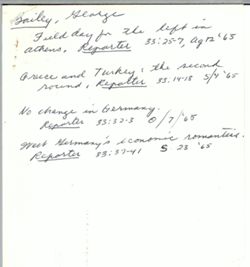 Bailey, George
Field day for the left in
Athens, Reporter 33:25-7, Ag 12 '65
Greece and Turkey: the second
round, Reporter 33:14-18 S/9 '65
No change in Germany.
Reporter 33:32-3 O/7/'65
West Germany's economic romantics.
Reporter 33:37-41 S 23 '65